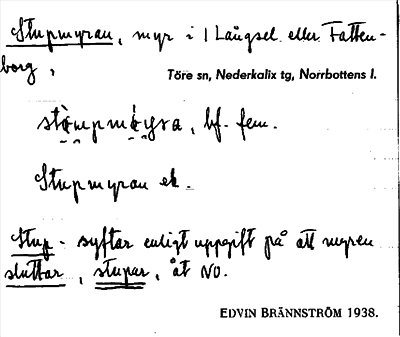 Stupmyran, myr i Långsel eller Fatten-
borg,
Töre sn, Nederkalix tg, Norrbottens l.
bf. fem.
Stupmyran ek.
Stup- syftar enligt uppgift på att myren
sluttar, stupar, åt NO.
EDVIN BRÄNNSTRÖM 1938.